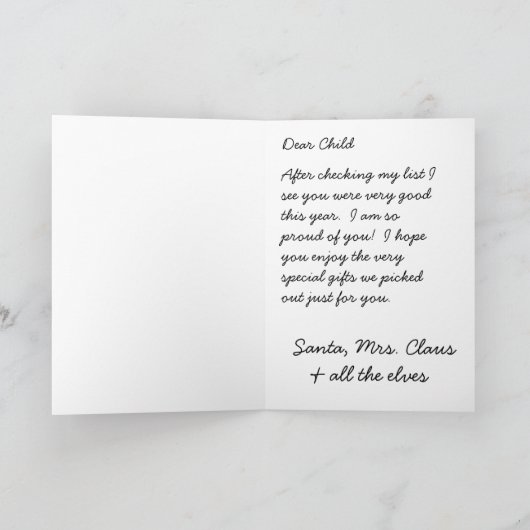 Dear Child
After checking my list I
see you were very good
this year. I am so
proud of you! I hope
you enjoy the very
special gifts we picked
out just for you.
Santa, Mrs. Claus
+ all the elves